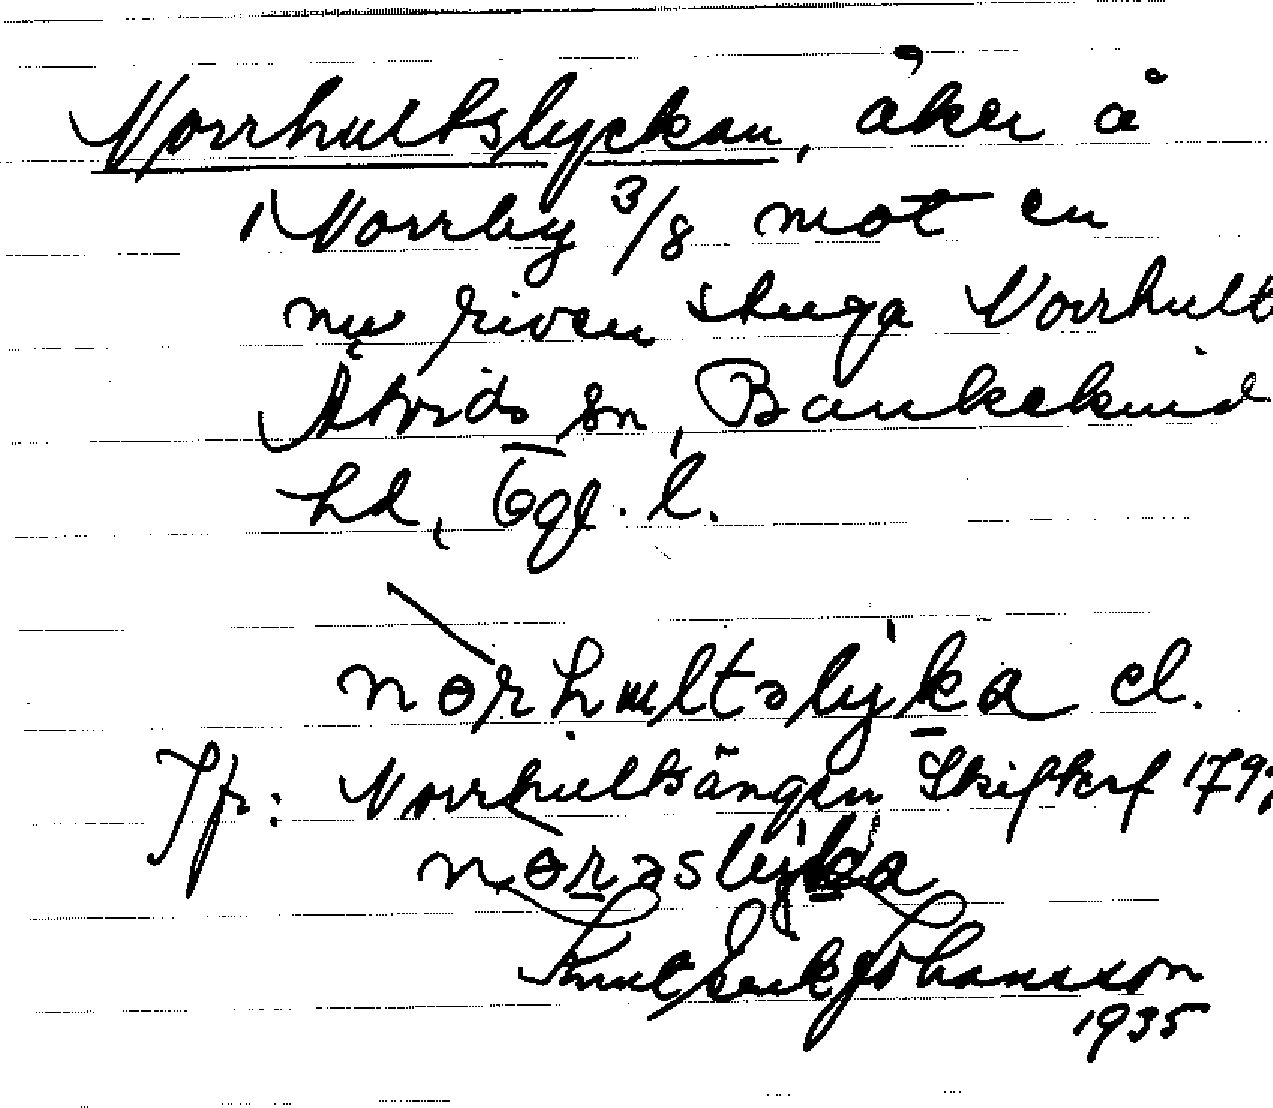 Norrhultslyckan, åker å
Norrby 3/8 mot en
nu riven stuga Norrhult
Åtvids sn, Bankekind
hd, Ögl. l.
nɵrhultsly̠ka el.
Jfr: Norrhultsängen Skifterf 179
nɵrəslyka
Knut Erik Johansson
1935